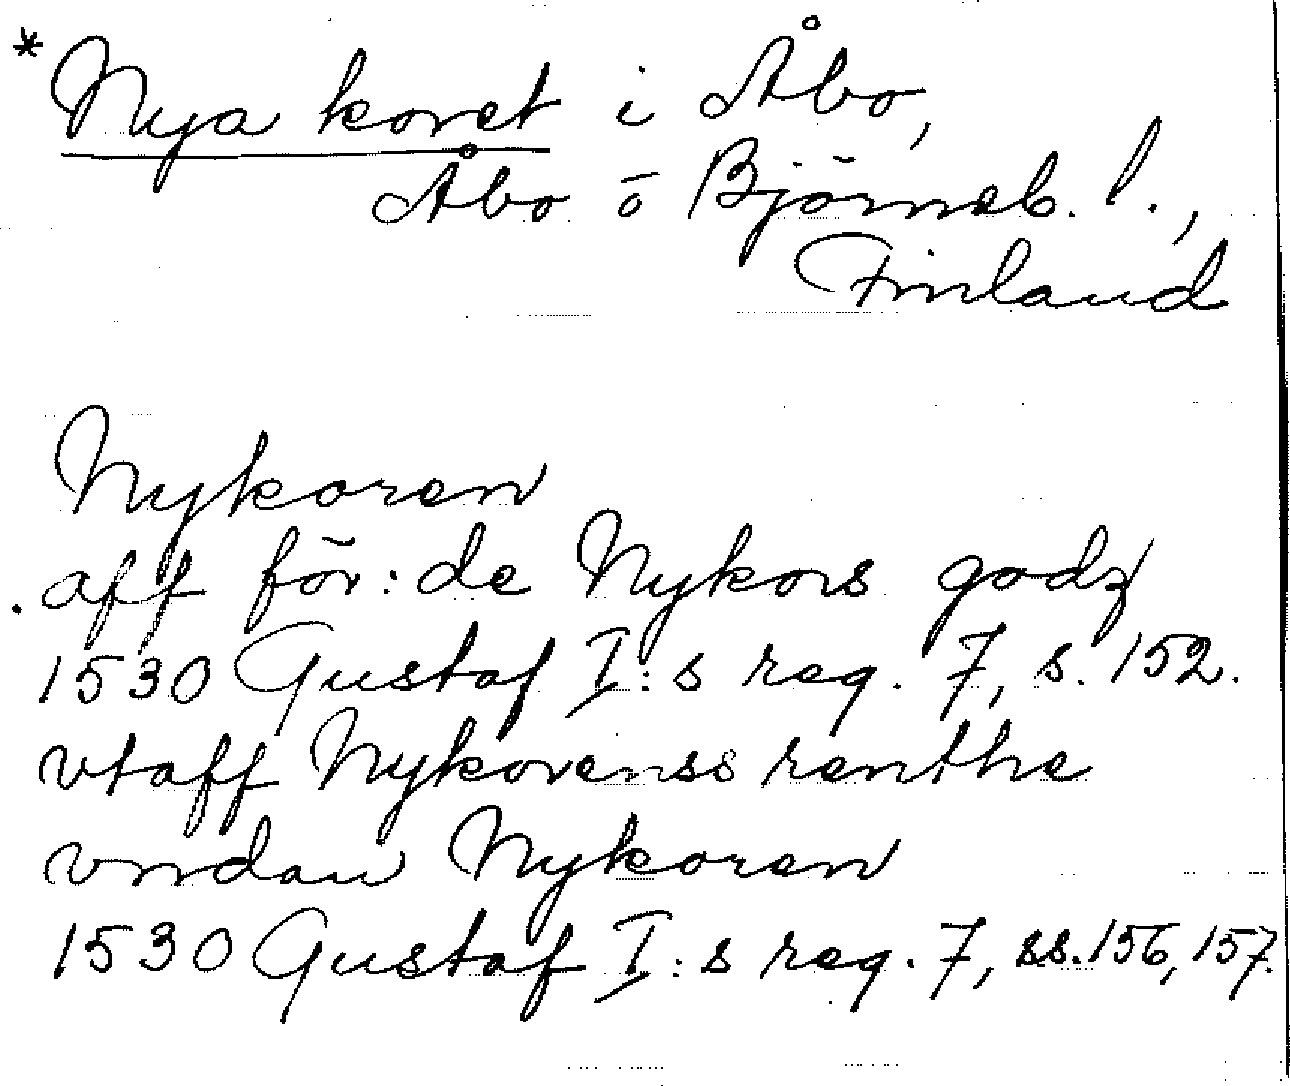 * Nya koret i Åbo,
Åbo o Björneb. l.,
Finland
Nykoren
aff för:de Nykors godz
1530 Gustaf I:s reg. 7, s. 152.
vtaff Nykorenss renthe
vndan Nykoren
1530 Gustaf I:s reg. 7, ss. 156, 157.